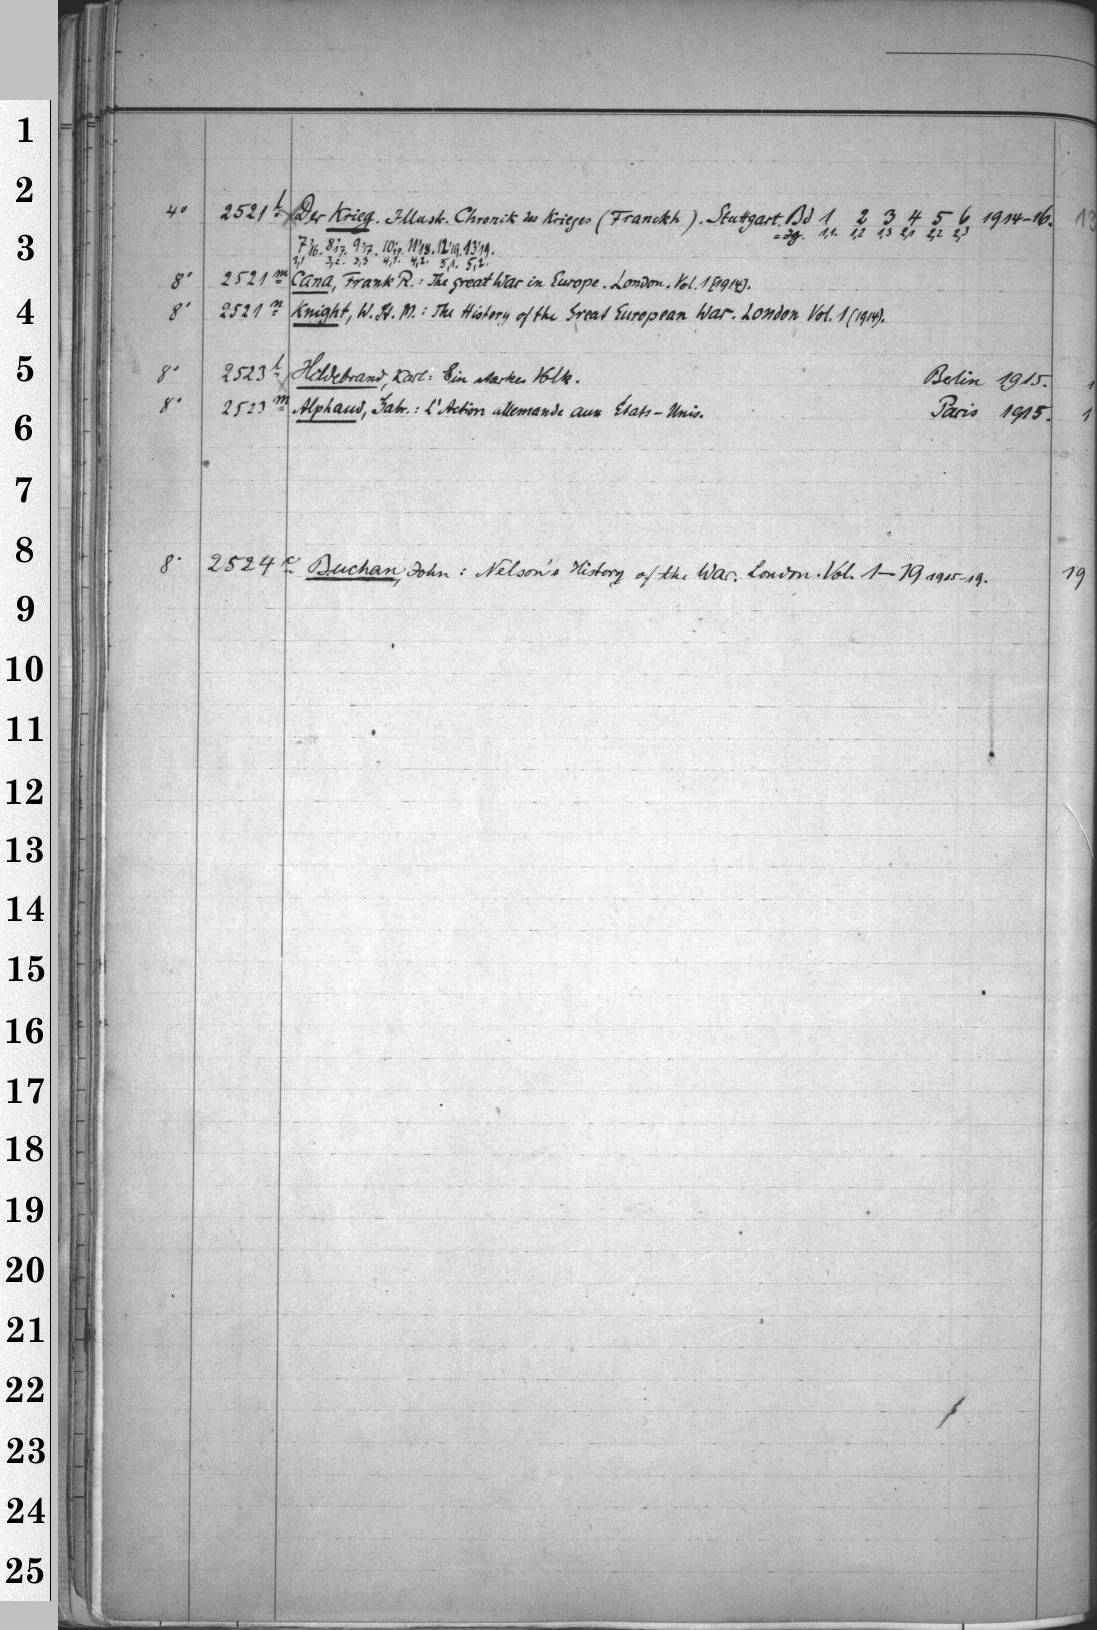 1
2
4° 2521 l Der Krieg. Illustr. Chronik des Krieges (Franckh). Stuttgart. Bd 1 2 3 4 5 6 1914-16. 13
= Jg. 1,1. 1,2 1,3 2,1 2,2 2,3
3
7'16. 8'17. 9'17. 10'17. 11'18. 12'19. 13'19.
3,1 3,2. 3,3 4,1. 4,2. 5,1. 5,2.
8° 2521 m Cana, Frank R.: The great War in Europe. London. Vol. 1 (1914).
4
8° 2521 n Knight, W. St. M.: The History of the Great European War. London Vol. 1 (1914).
5
8° 2523 l Hildebrand, Karl: Ein starkes Volk. Berlin 1915. 1
8° 2523 m Alphaud, Gabr.: L'Action allemande aux États-Unis. Paris 1915. 1
6
7
8
8° 2524 c Buchan, John: Nelson's History of the War. London. Vol. 1-19 1915-19. 19
9
10
11
12
13
14
15
16
17
18
19
20
21
22
23
24
25